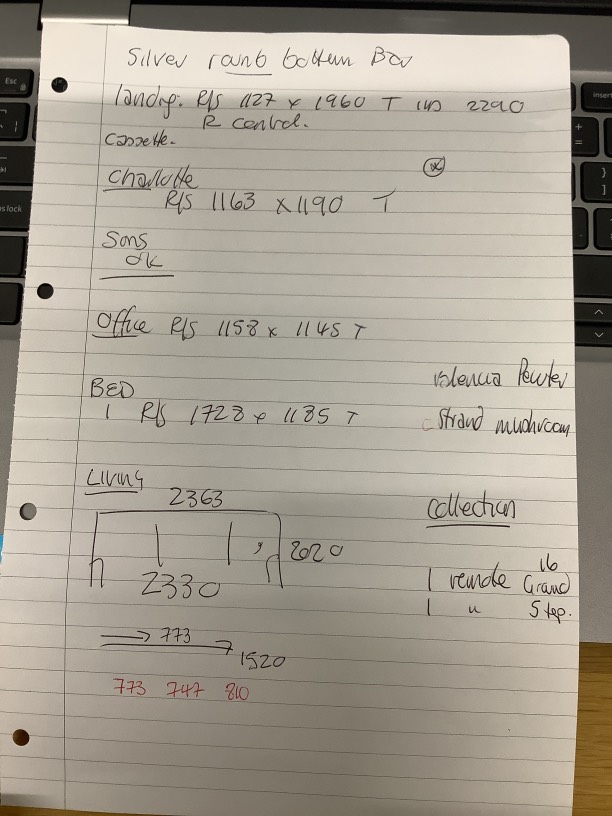 Silver round bottom Bar
landing. R/S 1127 x 1960 T 2290
R Control.
Cassette.
Charlotte
R/S 1163 x 1190 T
Sons
OK
Office R/S 1158 x 1145 T
Valencia Pewter
BED
1 R/S 1728 x 1185 T
Strand mushroom
Living
2363
Collection
2020
2330
1 remote 16 Grand
1 " 5 top.
773
1520
773 747 810
Esc
insert